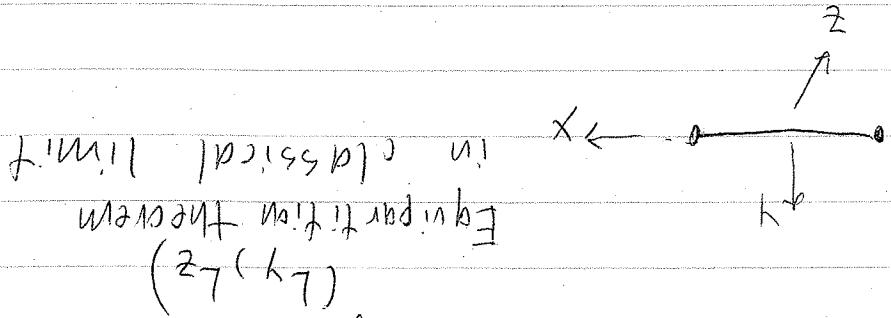 (Ly, Lz)
Equipartition theorem
in classical limit
y
x
z